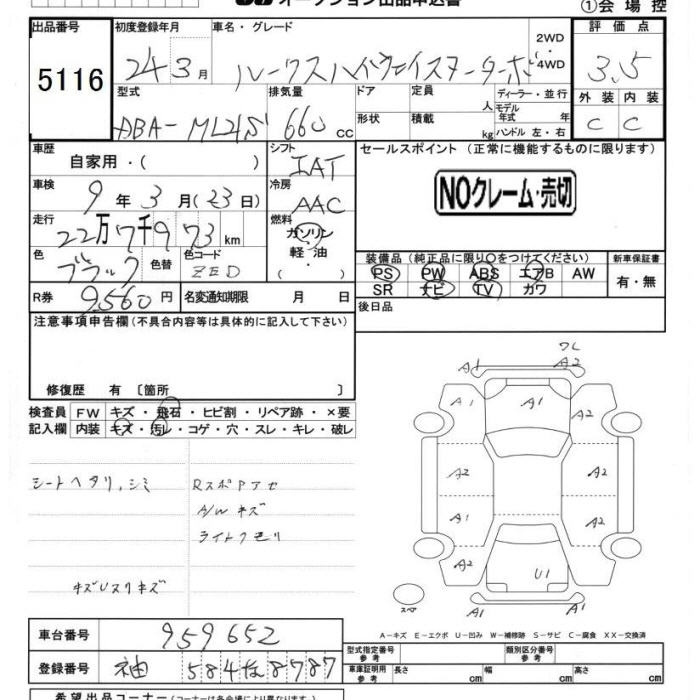 オークション出品申込書
①会場控
出品番号
5116
初度登録年月
24 3月
車名・グレード
ルークスハイウェイスターターボ
2WD
・
4WD
評価点
3.5
型式
DBA-ML21S
排気量
660 cc
ドア
定員
人
形状
積載
kg
ディーラー・並行
モデル年式 年
ハンドル 左・右
外装 内装
C C
車歴
自家用・( )
シフト
IAT
セールスポイント (正常に機能するものに限ります)
NOクレーム・売切
車検
9年3月(23日)
冷房
AAC
走行
22万7千973km
燃料
ガソリン
軽油
色
ブラック
色替
色コード
ZED
装備品 (純正品に限り○をつけてください)
新車保証書
PS PW ABS エアB AW
SR ナビ TV カワ
有・無
R券
9,560円
名変通知期限 月 日
後日品
注意事項申告欄 (不具合内容等は具体的に記入して下さい)
修復歴 有 〔箇所 〕
検査員
記入欄
FW キズ・飛石・ヒビ割・リペア跡・×要
内装 キズ・汚レ・コゲ・穴・スレ・キレ・破レ
シートヘタリ、シミ
RスポPアセ
A/W キズ
ライトクモリ
キズUスリキズ
ワレ
A1 A2
A1 A1 A2
A2 A2
A1 A2
A2 U1 A2
スペア
A1 A1
A-キズ E-エクボ U-凹み W-補修跡 S-サビ C-腐食 XX-交換済
車台番号
959652
登録番号
袖 584な8787
型式指定番号
参考
類別区分番号
参考
車庫証明用
参考
長さ cm 幅 cm 高さ cm
希望出品コーナー (コーナーは各会場により異なります)